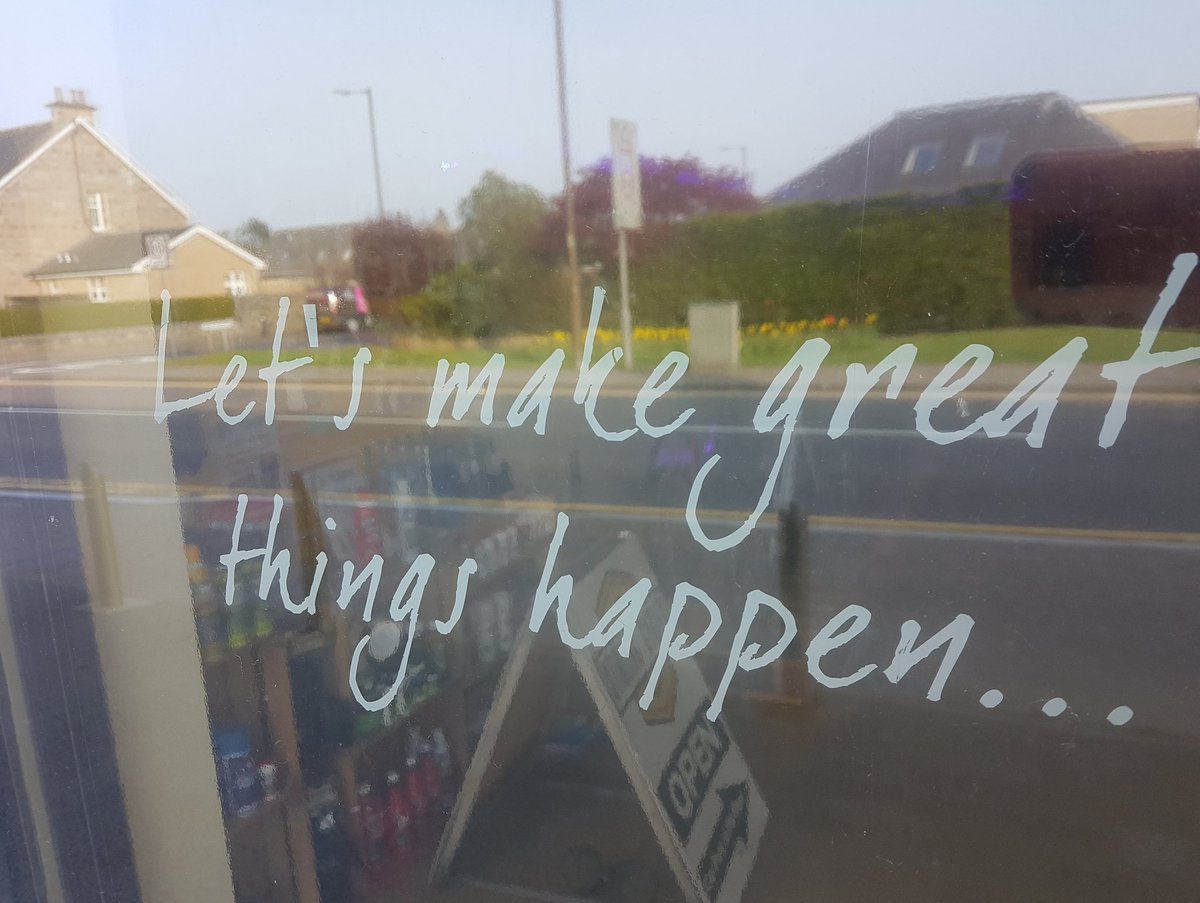 Let's make great
things happen...
OPEN